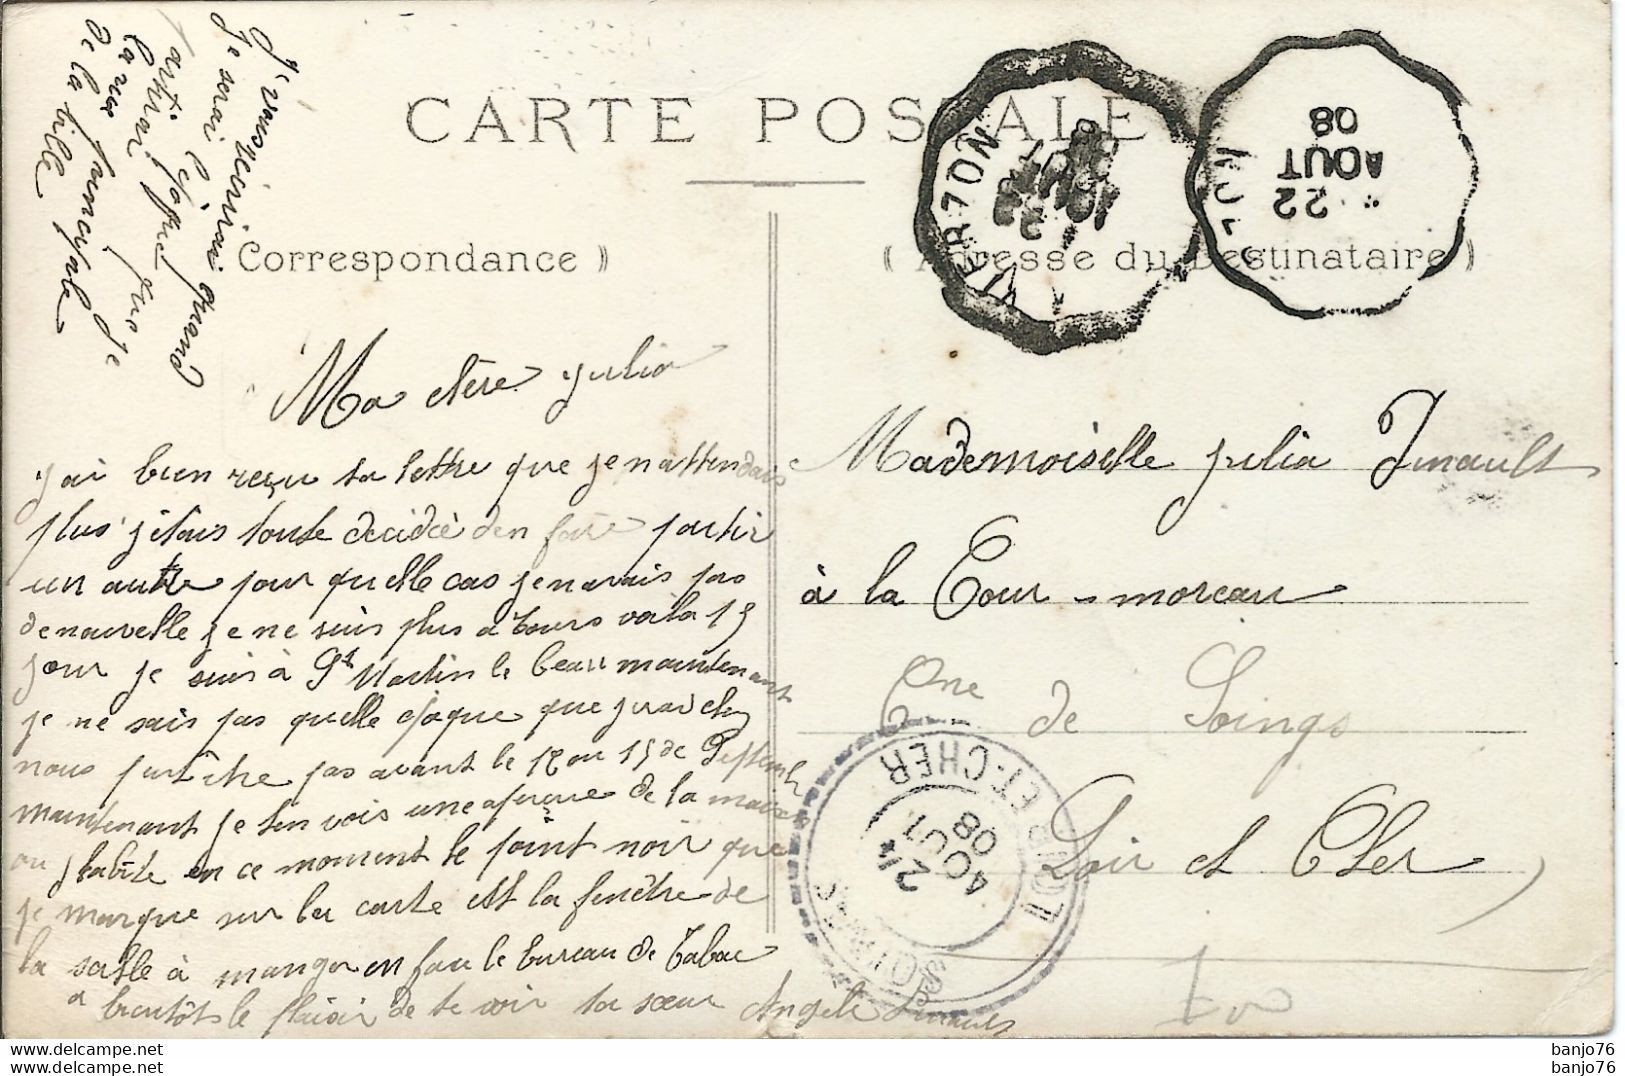 CARTE POSTALE
Correspondance
Adresse du Destinataire
VIERZON
22
AOUT
08
Je vous écrirai quand
je serai
de la ville
Ma chère julia
j'ai bien reçu ta lettre que je nattendais
plus j'étais toute decidée den faire partir
un autre pour quelle cas je navais pas
de nouvelle je ne suis plus a tours voila 15
jour je suis à St Martin le beau maintenant
je ne sais pas quelle epoque que jirai chez
nous peut être pas avant le 12 ou 15 de Septembre
maintenant je ten vois une de la maison
ou jhabite en ce moment le point noir que
je marque sur la carte est la fenêtre de
la salle à manger en face le bureau de Tabac
a bientôt le plaisir de te voir ta sœur Angele
Mademoiselle julia
à la Cour-moreau
Cne de Soings
Loir et Cher
SOINGS
LOIR-ET-CHER
24
AOUT
08
banjo76
banjo76